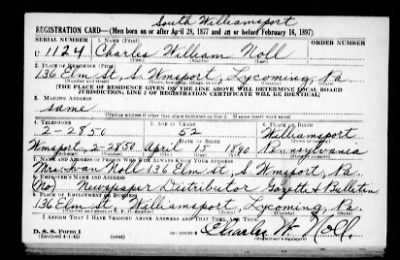 South Williamsport
REGISTRATION CARD—(Men born on or after April 28, 1877 and on or before February 16, 1897)
SERIAL NUMBER 1. NAME (Print) ORDER NUMBER
U 1124 Charles William Noll
(First) (Middle) (Last)
2. PLACE OF RESIDENCE (Print)
136 Elm St, S Wmsport, Lycoming, Pa
[THE PLACE OF RESIDENCE GIVEN ON THE LINE ABOVE WILL DETERMINE LOCAL BOARD
JURISDICTION; LINE 2 OF REGISTRATION CERTIFICATE WILL BE IDENTICAL]
3. MAILING ADDRESS
same
4. TELEPHONE 5. AGE IN YEARS 6. PLACE OF BIRTH
2-2850 52 Williamsport
DATE OF BIRTH
Wmsport, 2-2850 April 15 1890 Pennsylvania
7. NAME AND ADDRESS OF PERSON WHO WILL ALWAYS KNOW YOUR ADDRESS
Noll 136 Elm St, S Wmsport, Pa.
8. EMPLOYER'S NAME AND ADDRESS
Newspaper Distributor Gazette & Bulletin
9. PLACE OF EMPLOYMENT OR BUSINESS
136 Elm St, Williamsport, Lycoming, Pa.
I AFFIRM THAT I HAVE VERIFIED ABOVE ANSWERS AND THAT THEY ARE TRUE.
D. S. S. Form 1
(Revised 4-1-42) Charles W. Noll.